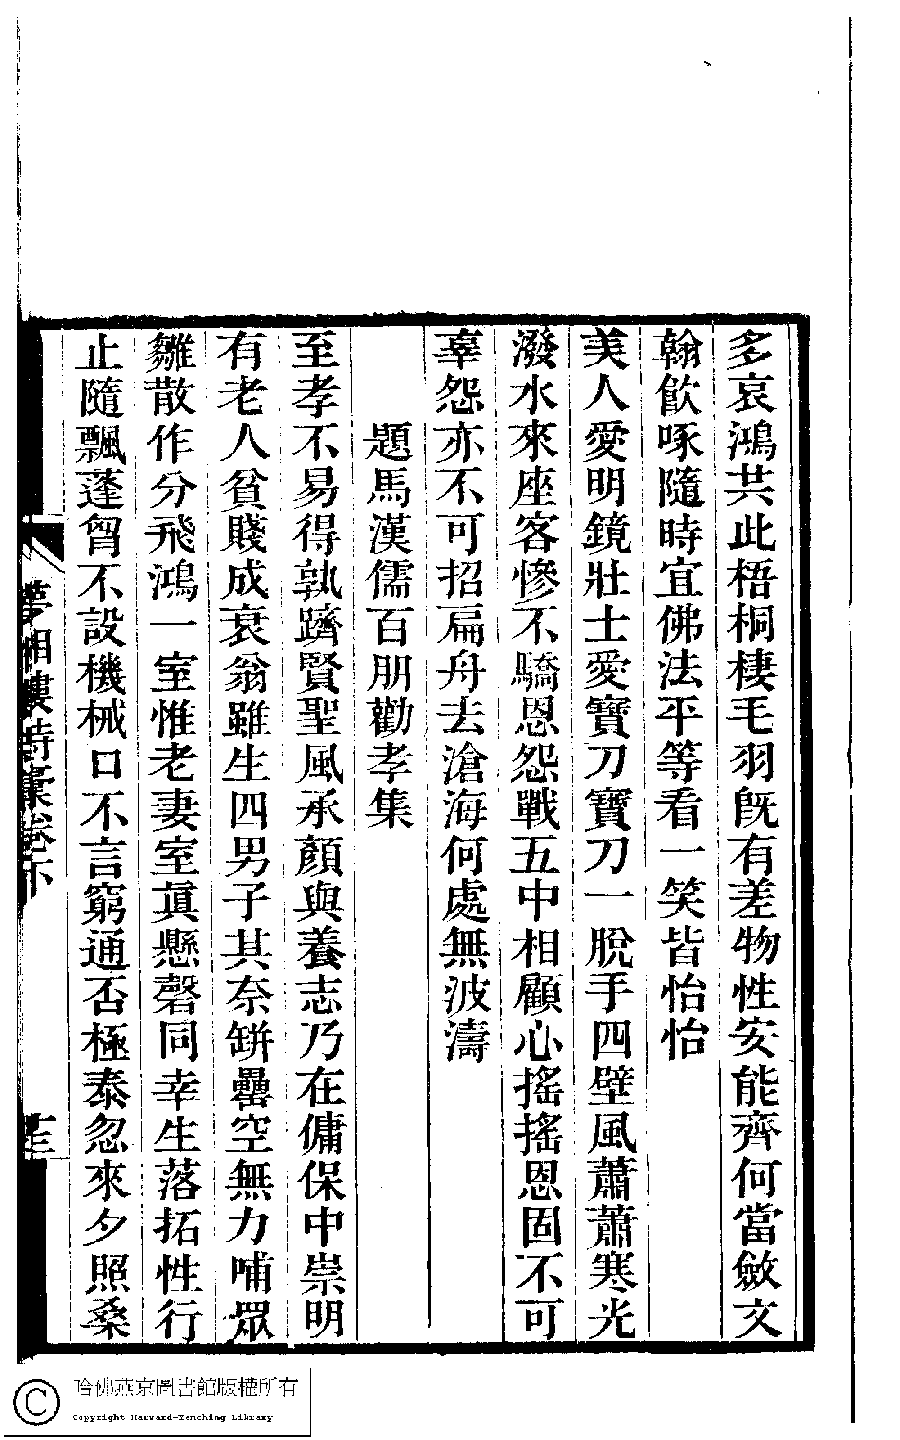 多哀鴻共此梧桐棲毛羽旣有差物性安能齊何當斂文
翰飮啄隨時宜佛法平等看一笑皆怡怡
美人愛明鏡壯士愛寶刀寶刀一脫手四壁風蕭蕭寒光
潑水來座客慘不驕恩怨戰五中相顧心搖搖恩固不可
辜怨亦不可招扁舟去滄海何處無波濤
題馬漢儒百朋勸孝集
至孝不易得孰躋賢聖風承顏與養志乃在傭保中崇明
有老人貧賤成衰翁雖生四男子其奈缾罍空無力哺眾
雛散作分飛鴻一室惟老妻室眞懸磬同幸生落拓性行
止隨飄蓬曾不設機械口不言窮通否極泰忽來夕照桑
夢湘樓詩稾卷下
哈佛燕京圖書館版權所有
Copyright Harvard-Yenching Library